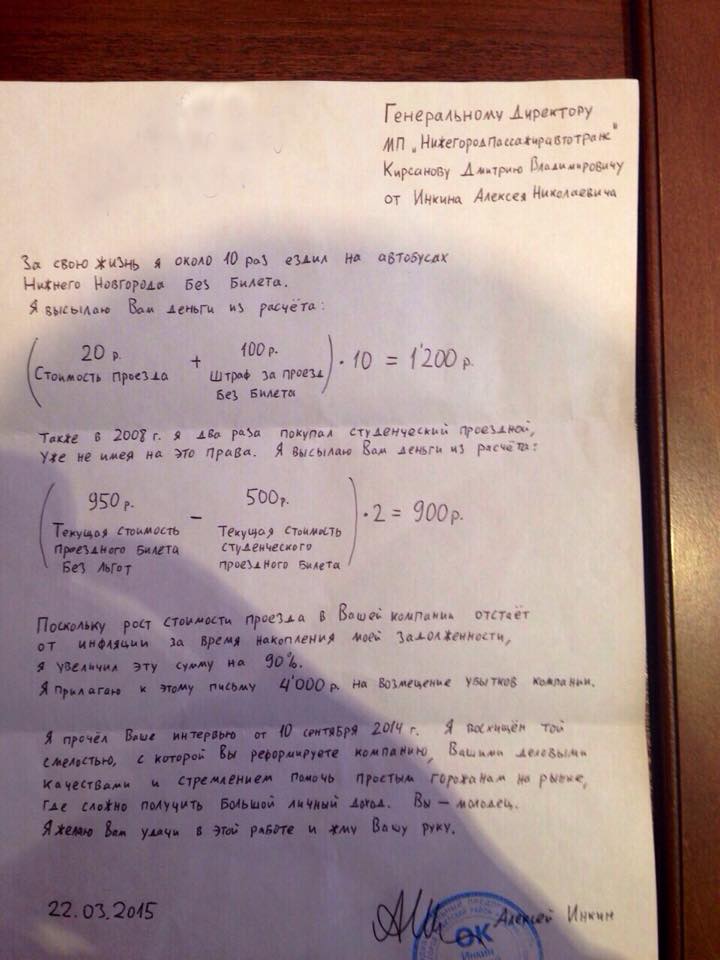 Генеральному Директору
МП „Нижегородпассажиравтотранс"
Кирсанову Дмитрию Владимировичу
от Инкина Алексея Николаевича
За свою жизнь я около 10 раз ездил на автобусах
Нижнего Новгорода без билета.
Я высылаю Вам деньги из расчёта:
( 20 р. + 100 р. ) · 10 = 1'200 р.
Стоимость проезда Штраф за проезд
без билета
Также в 2008 г. я два раза покупал студенческий проездной,
уже не имея на это права. Я высылаю Вам деньги из расчёта:
( 950 р. − 500 р. ) · 2 = 900 р.
Текущая стоимость Текущая стоимость
проездного билета студенческого
без льгот проездного билета
Поскольку рост стоимости проезда в Вашей компании отстаёт
от инфляции за время накопления моей задолженности,
я увеличил эту сумму на 90%.
Я прилагаю к этому письму 4'000 р. на возмещение убытков компании.
Я прочёл Ваше интервью от 10 сентября 2014 г. Я восхищён той
смелостью, с которой Вы реформируете компанию, Вашими деловыми
качествами и стремлением помочь простым горожанам на рынке,
где сложно получить большой личный доход. Вы — молодец.
Я желаю Вам удачи в этой работе и жму Вашу руку.
22.03.2015 Алексей Инкин
ОК
Инкин